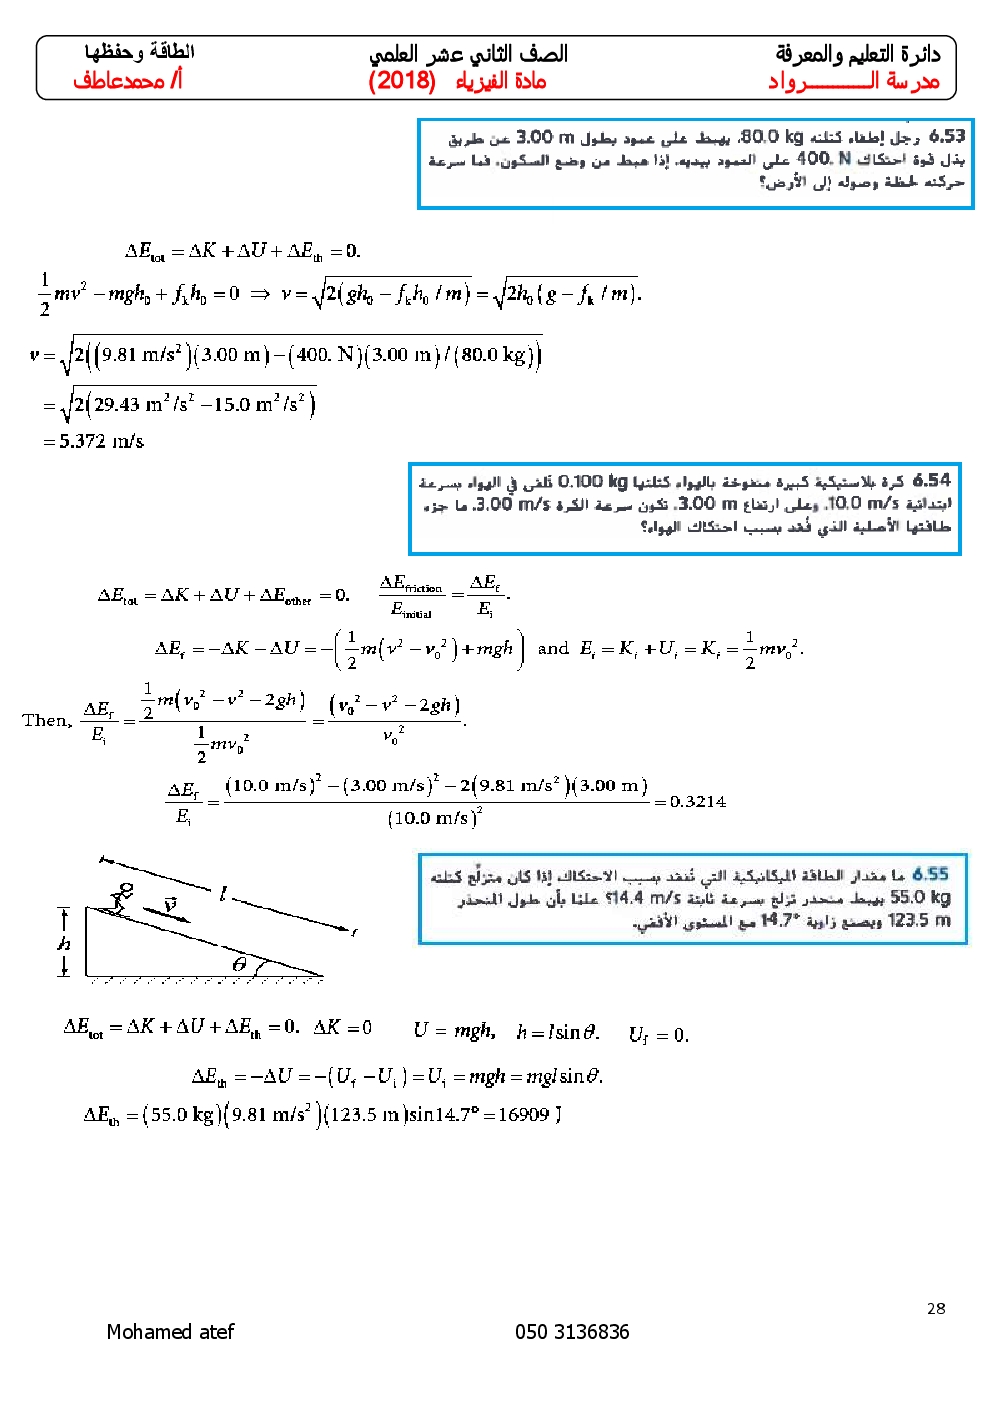 دائرة التعليم والمعرفة الصف الثاني عشر العلمي الطاقة وحفظها
مدرسة الـــــــــــرواد مادة الفيزياء (2018) أ/ محمدعاطف
6.53 رجل إطفاء كتلته 80.0 kg، يهبط على عمود بطول 3.00 m عن طريق
بذل قوة احتكاك 400. N على العمود بيديه. إذا هبط من وضع السكون، فما سرعة
حركته لحظة وصوله إلى الأرض؟
ΔE_tot = ΔK + ΔU + ΔE_th = 0.
1/2 mv² − mgh₀ + f_k h₀ = 0 ⇒ v = √(2(gh₀ − f_k h₀ / m)) = √(2h₀(g − f_k / m)).
v = √(2((9.81 m/s²)(3.00 m) − (400. N)(3.00 m)/(80.0 kg)))
= √(2(29.43 m²/s² − 15.0 m²/s²))
= 5.372 m/s
6.54 كرة بلاستيكية كبيرة منفوخة بالهواء كتلتها 0.100 kg تلقى في الهواء بسرعة
ابتدائية 10.0 m/s. وعلى ارتفاع 3.00 m، تكون سرعة الكرة 3.00 m/s. ما جزء
طاقتها الأصلية الذي فُقد بسبب احتكاك الهواء؟
ΔE_tot = ΔK + ΔU + ΔE_other = 0. ΔE_friction / E_initial = ΔE_f / E_i.
ΔE_f = −ΔK − ΔU = −(1/2 m(v² − v₀²) + mgh) and E_i = K_i + U_i = K_i = 1/2 mv₀².
Then, ΔE_f / E_i = 1/2 m(v₀² − v² − 2gh) / 1/2 mv₀² = (v₀² − v² − 2gh) / v₀².
ΔE_f / E_i = ((10.0 m/s)² − (3.00 m/s)² − 2(9.81 m/s²)(3.00 m)) / (10.0 m/s)² = 0.3214
6.55 ما مقدار الطاقة الميكانيكية التي تُفقد بسبب الاحتكاك إذا كان متزلّج كتلته
55.0 kg يهبط منحدر تزلج بسرعة ثابتة 14.4 m/s؟ علمًا بأن طول المنحدر
123.5 m ويصنع زاوية 14.7° مع المستوى الأفقي.
l
v
h
θ
ΔE_tot = ΔK + ΔU + ΔE_th = 0. ΔK = 0 U = mgh, h = l sin θ. U_f = 0.
ΔE_th = −ΔU = −(U_f − U_i) = U_i = mgh = mgl sin θ.
ΔE_th = (55.0 kg)(9.81 m/s²)(123.5 m)sin14.7° = 16909 J
28
Mohamed atef 050 3136836